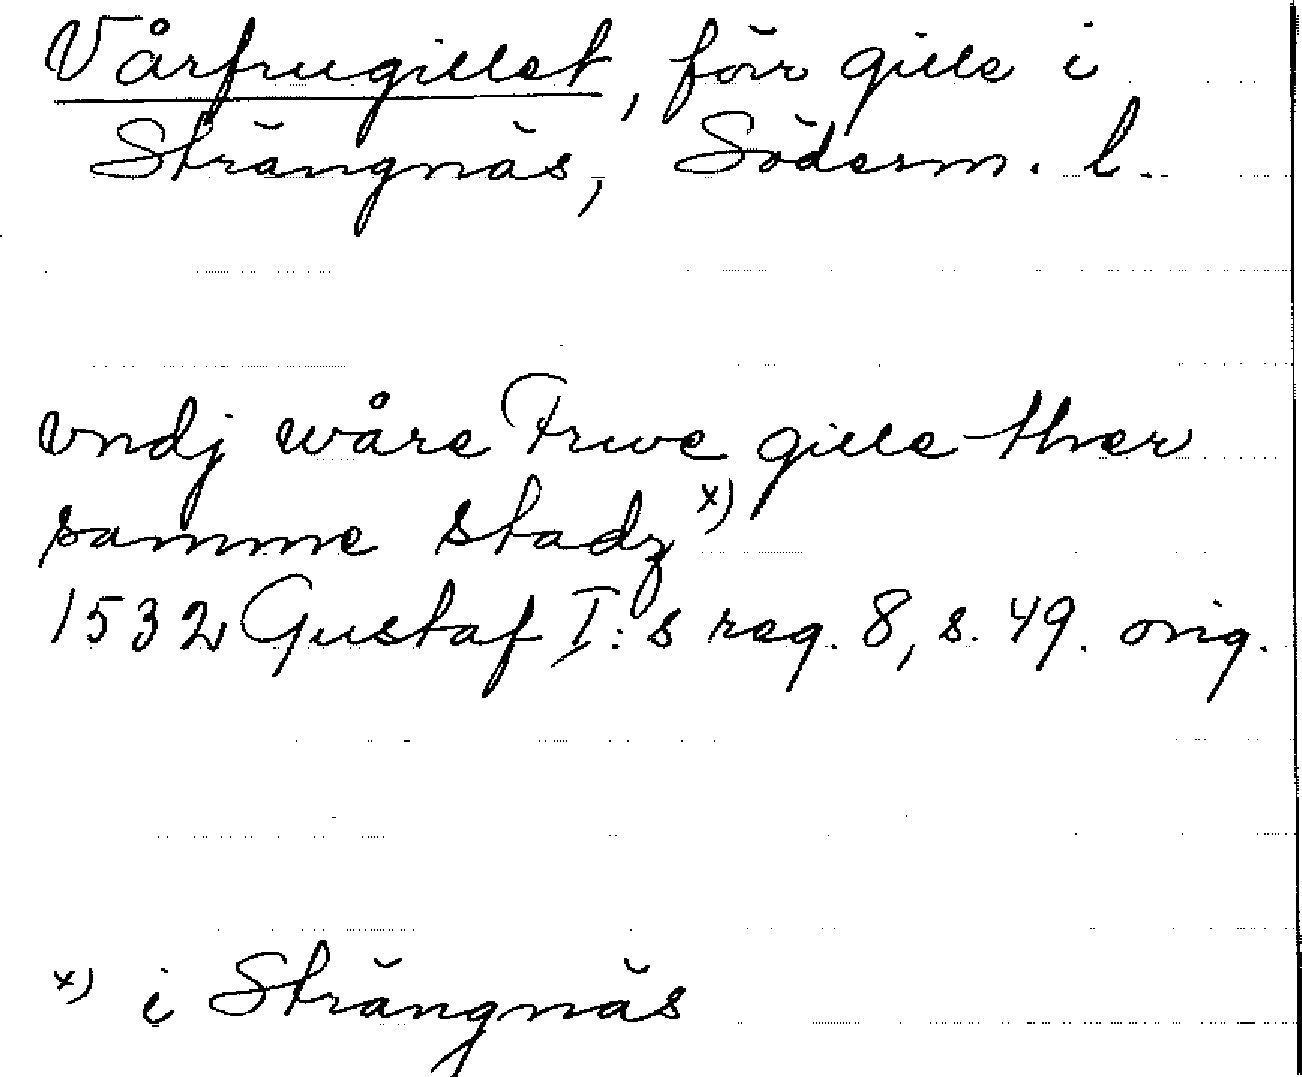 Vårfrugillet, förr gille i
Strängnäs, Söderm. l.
vndj wåre Frwe gille ther
samme stadz x)
1532 Gustaf I:s reg. 8, s. 49. orig.
x) i Strängnäs